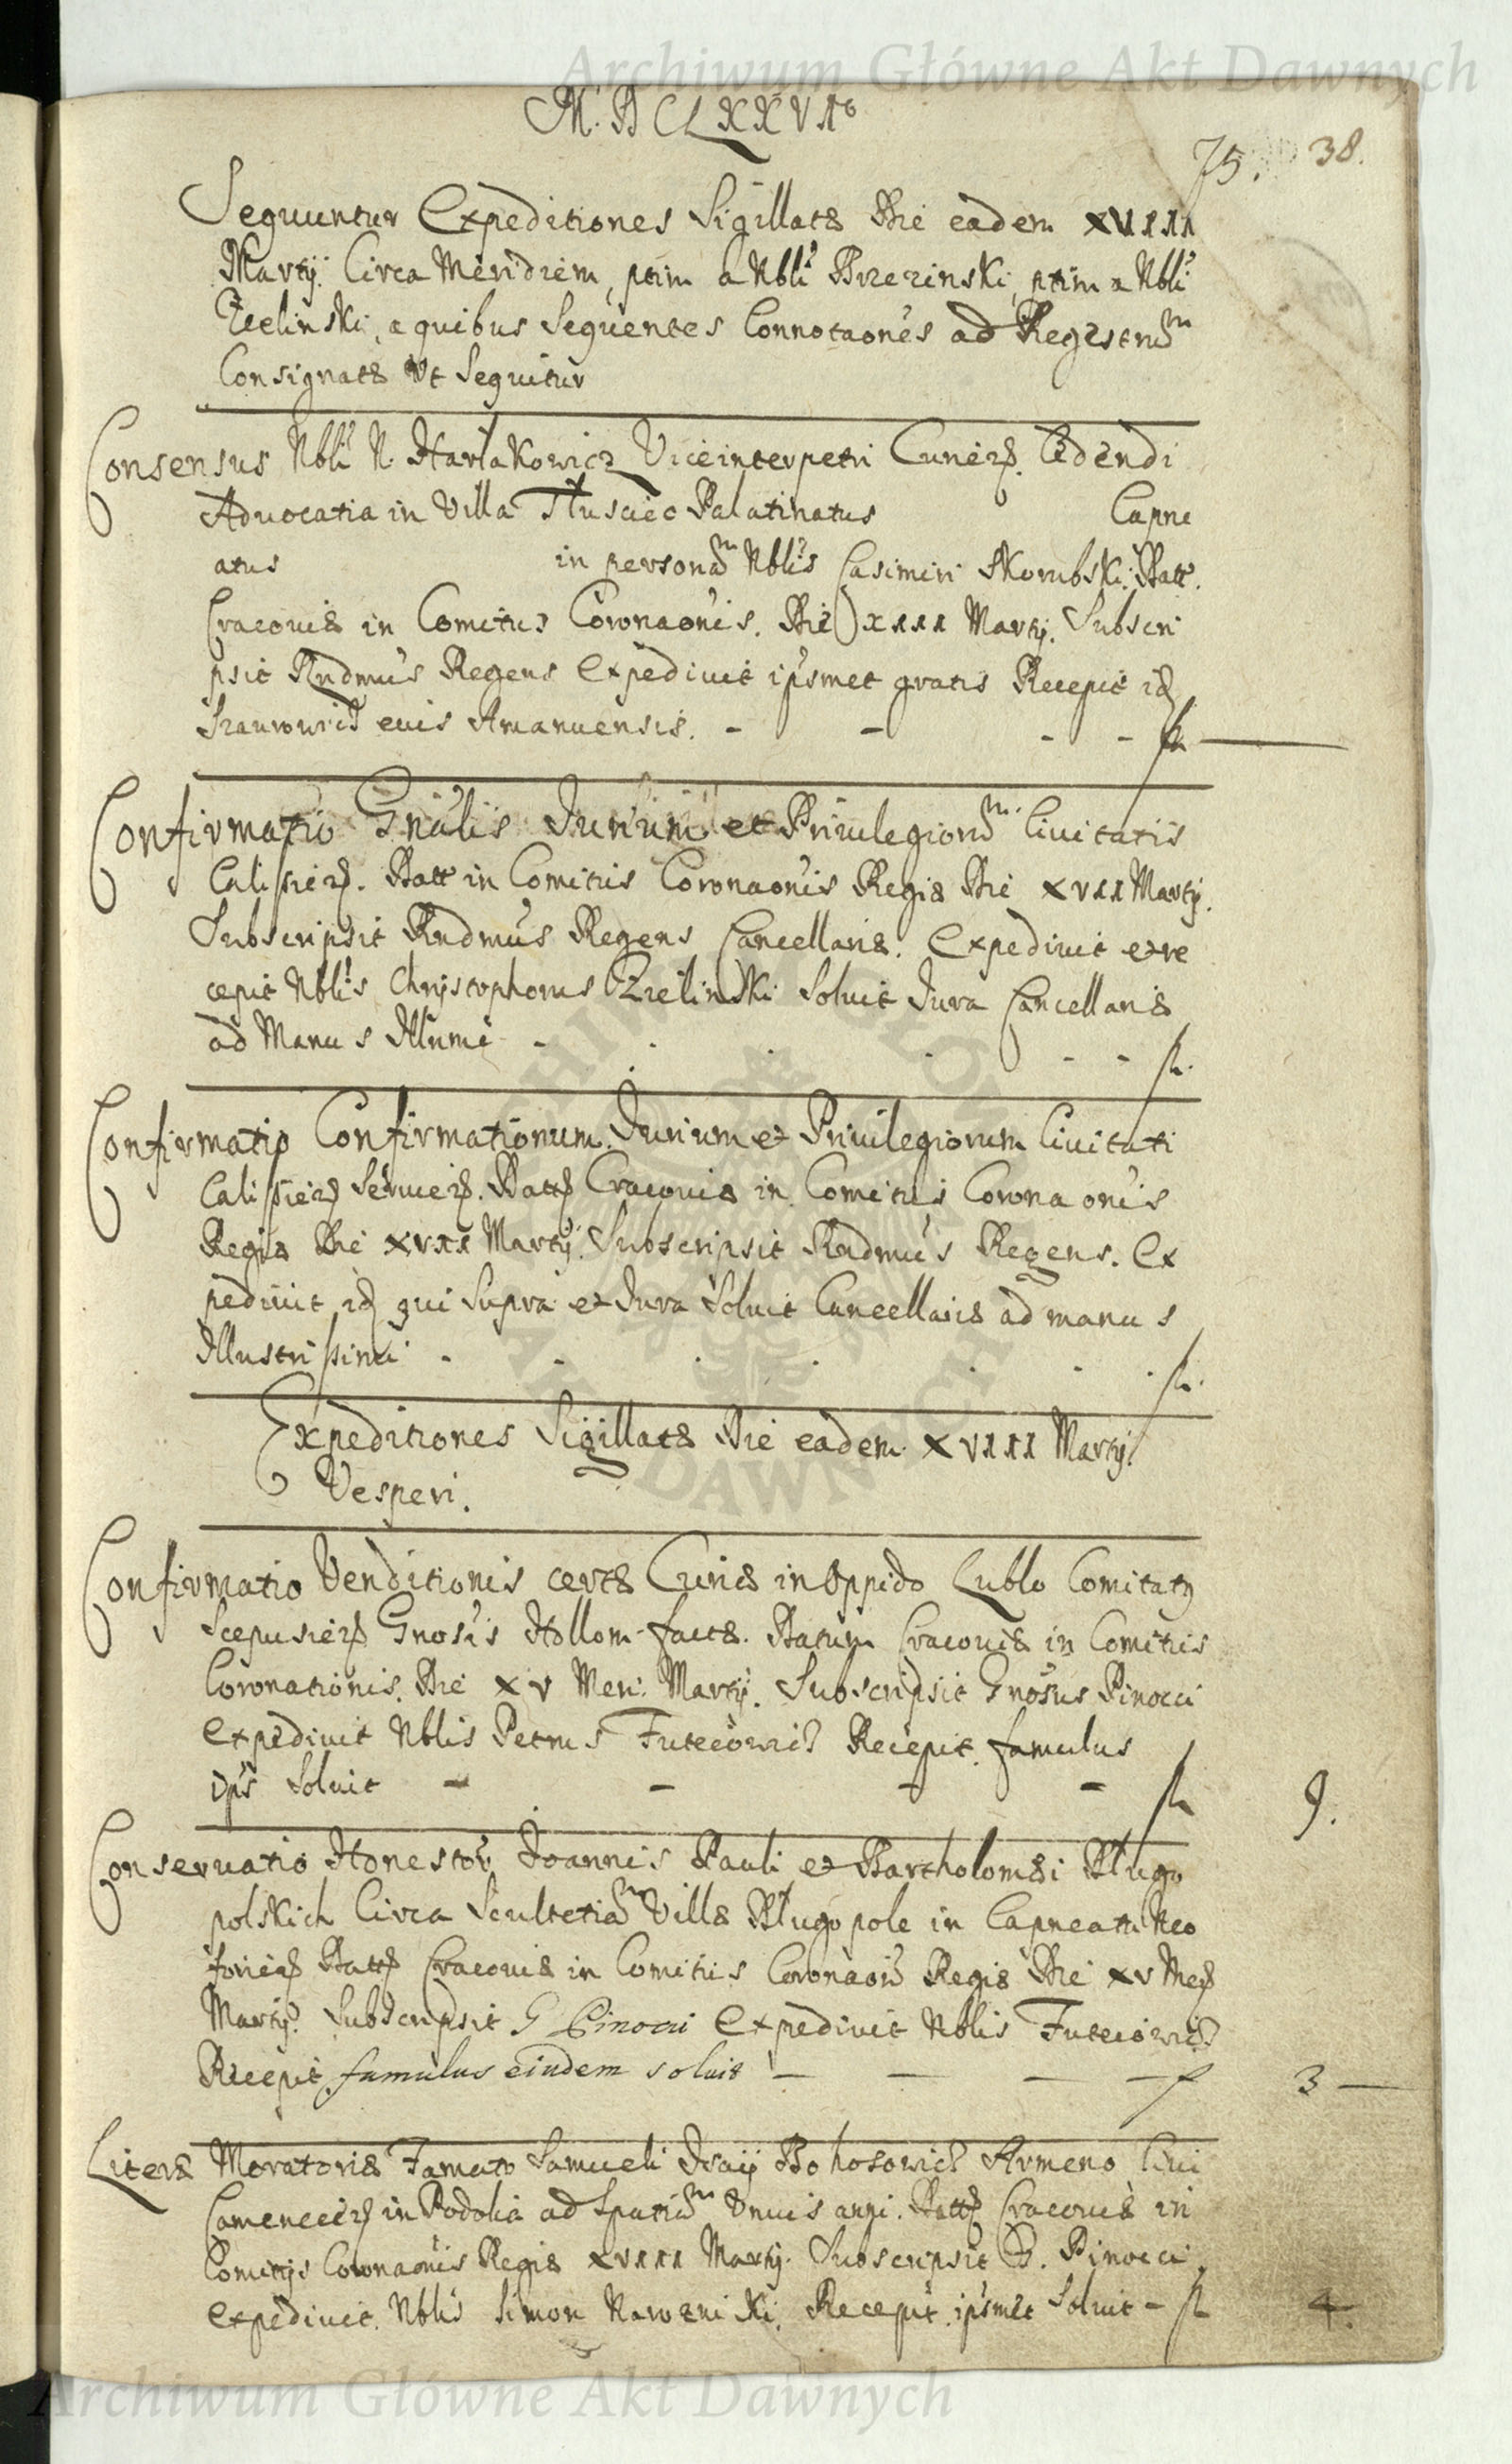 Archiwum Główne Akt Dawnych
M. D C L X X V Io
75. 38.
Sequuntur Expeditiones Sigillatæ Die eadem XVIII
Martij. Circa Meridiem, ptim a Nbli Brzezinski, ptim a Nbli
Zielinski, a quibus Sequentes Connotaones ad Regestrum
Consignatæ Vt Sequitur
Consensus Nbli N. Harłakowicz Viceinterpetri Cunien. Cedendi
Aduocatia in Villa Tłusciec Palatinatus Capne
atus in personam Nblis Casimiri Skorubski. Datt.
Cracouiæ in Comitijs Coronaonis. Die XIII Martij. Subscri
psit Rndmus Regens Expediuit ipsmet gratis Recepit id
Szaurowicz euis Amanuensis. - - - - fl. —
Confirmatio Gnalis Jurium et Priuilegiorum Ciuitatis
Calissien. Datt in Comitijs Coronaonis Regiæ Die XVII Martij.
Subscripsit Rndmus Regens Cancellariæ. Expediuit et re
cepit Nblis Chrystophorus Zielinski Soluit Jura Cancellariæ
ad Manus Illumi - - - fl.
Confirmatio Confirmationum Jurium et Priuilegiorum Ciuitati
Calissien Seruien. Datt Cracouiæ in Comitijs Coronaonis
Regiæ Die XVII Martij. Subscripsit Rndmus Regens. Ex
pediuit id qui Supra et Jura Soluit Cancellariæ ad manus
Illustrissimi . . . . fl.
Expeditiones Sigillatæ Die eadem XVIII Martij
Vesperi.
Confirmatio Venditionis certæ Curiæ in Oppido Lublo Comitatus
Scepusien Gnosis Hollom factæ. Datum Cracouiæ in Comitijs
Coronationis. Die XV Men: Martij. Subscripsit Gnosus Pinocci
Expediuit Nblis Petrus Futecowicz Recepit famulus
Ips Soluit - - - - fl 9.
Conseruatio Honestor Joannis Pauli et Bartholomæi Długo
polskich Circa Scultetiam Villæ Długopole in Capneatu Neo
forien Datt Cracouiæ in Comitijs Coronaonis Regiæ Die XV Mens
Martij. Subscripsit G Pinocci Expediuit Nblis Futecowicz
Recepit famulus eiudem soluit - - - - f 3 —
Literæ Moratoriæ Famato Samueli Isaij Bohosowicz Armeno Ciui
Camenecen in Podolia ad Spatium Vnius anni. Datt Cracouiæ in
Comitijs Coronaonis Regiæ XVIII Martij. Subscripsit G. Pinocci
expediuit. Nblis Simon Recepit ipsmet Soluit - fl 4.
Archiwum Główne Akt Dawnych